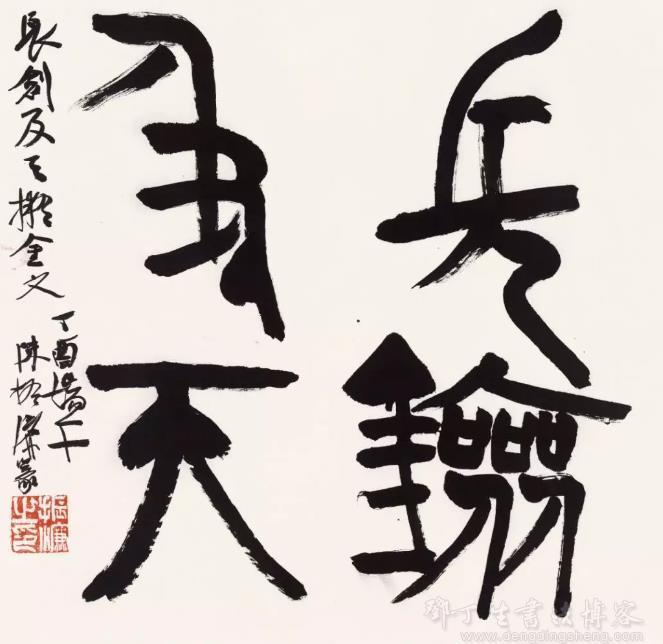 長鐱
及天
長劍及天擬金文
丁酉端午
陳振濂篆
振濂之印
鄧丁生書法博客
www.dengdingsheng.com